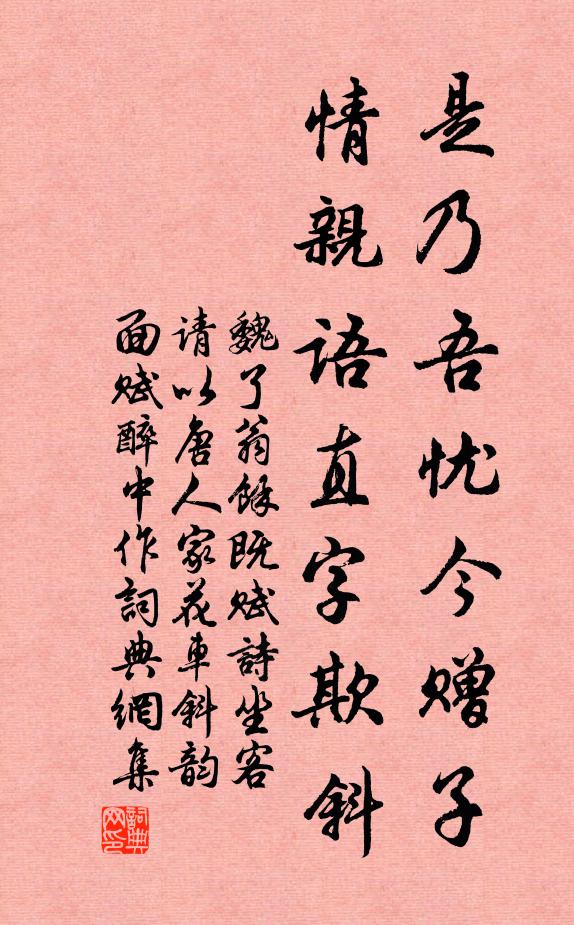 是乃吾忧今赠子
情親語直字欺斜
魏了翁餘既赋詩坐客
请以唐人家花車斜韵
面赋醉中作詞典網集
詞典网印